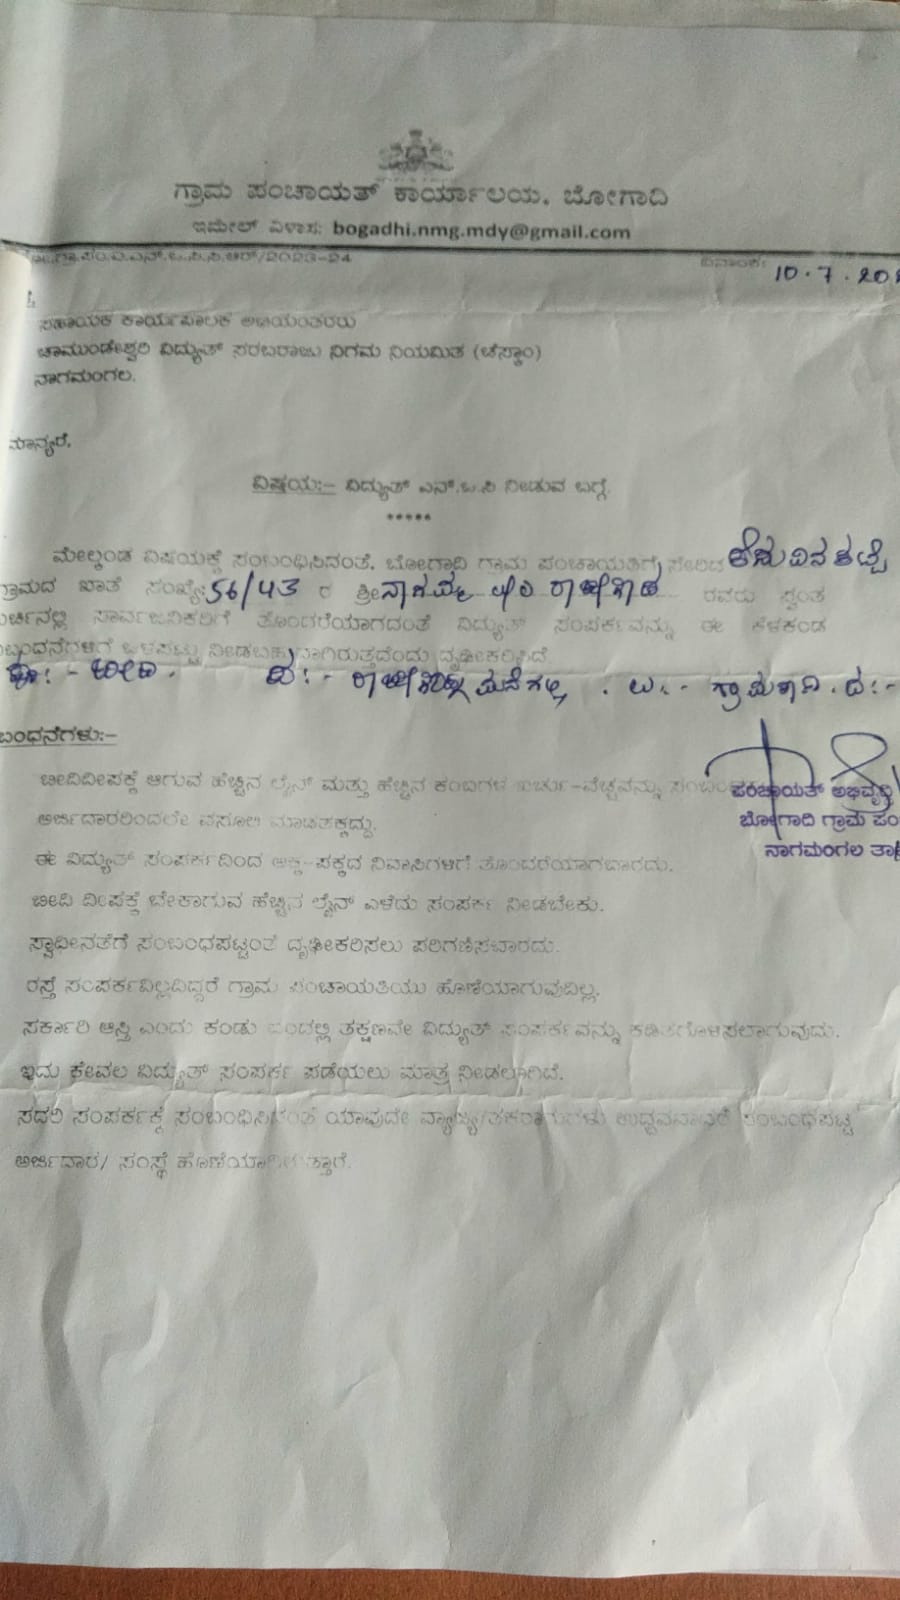 ಗ್ರಾಮ ಪಂಚಾಯತ್ ಕಾರ್ಯಾಲಯ, ಬೋಗಾದಿ
ಇಮೇಲ್ ವಿಳಾಸ: bogadhi.nmg.mdy@gmail.com
ಗ್ರಾ.ಪಂ.ವಿ.ಎನ್.ಒ.ಸಿ.ಸಿ.ಆರ್/2023-24 ದಿನಾಂಕ: 10.7.202
ಸಹಾಯಕ ಕಾರ್ಯಪಾಲಕ ಅಭಿಯಂತರರು
ಚಾಮುಂಡೇಶ್ವರಿ ವಿದ್ಯುತ್ ಸರಬರಾಜು ನಿಗಮ ನಿಯಮಿತ (ಚೆಸ್ಕಾಂ)
ನಾಗಮಂಗಲ.
ಮಾನ್ಯರೆ,
ವಿಷಯ:- ವಿದ್ಯುತ್ ಎನ್.ಒ.ಸಿ ನೀಡುವ ಬಗ್ಗೆ.
*****
ಮೇಲ್ಕಂಡ ವಿಷಯಕ್ಕೆ ಸಂಬಂಧಿಸಿದಂತೆ, ಬೋಗಾದಿ ಗ್ರಾಮ ಪಂಚಾಯತಿಗೆ ಸೇರಿದ
ಗ್ರಾಮದ ಖಾತೆ ಸಂಖ್ಯೆ: 56/43 ರ ಶ್ರೀ ರವರು ಸ್ವಂತ
ಖರ್ಚಿನಲ್ಲಿ ಸಾರ್ವಜನಿಕರಿಗೆ ತೊಂದರೆಯಾಗದಂತೆ ವಿದ್ಯುತ್ ಸಂಪರ್ಕವನ್ನು ಈ ಕೆಳಕಂಡ
ನಿಬಂದನೆಗಳಿಗೆ ಒಳಪಟ್ಟು ನೀಡಬಹುದಾಗಿರುತ್ತದೆಂದು ದೃಢೀಕರಿಸಿದೆ
ಬಂಧನೆಗಳು:-
ಬೀದಿದೀಪಕ್ಕೆ ಆಗುವ ಹೆಚ್ಚಿನ ಲೈನ್ ಮತ್ತು ಹೆಚ್ಚಿನ ಕಂಬಗಳ ಖರ್ಚು-ವೆಚ್ಚವನ್ನು
ಪಂಚಾಯತ್ ಅಭಿವೃದ್ಧಿ
ಅರ್ಜಿದಾರರಿಂದಲೇ ವಸೂಲಿ ಮಾಡತಕ್ಕದ್ದು.
ಬೋಗಾದಿ ಗ್ರಾಮ ಪಂ
ನಾಗಮಂಗಲ ತಾ
ಈ ವಿದ್ಯುತ್ ಸಂಪರ್ಕದಿಂದ ಅಕ್ಕ-ಪಕ್ಕದ ನಿವಾಸಿಗಳಿಗೆ ತೊಂದರೆಯಾಗಬಾರದು.
ಬೀದಿ ದೀಪಕ್ಕೆ ಬೇಕಾಗುವ ಹೆಚ್ಚಿನ ಲೈನ್ ಎಳೆದು ಸಂಪರ್ಕ ನೀಡಬೇಕು.
ಸ್ವಾಧೀನತೆಗೆ ಸಂಬಂಧಪಟ್ಟಂತೆ ದೃಢೀಕರಿಸಲು ಪರಿಗಣಿಸಬಾರದು.
ರಸ್ತೆ ಸಂಪರ್ಕವಿಲ್ಲದಿದ್ದರೆ ಗ್ರಾಮ ಪಂಚಾಯತಿಯು ಹೊಣೆಯಾಗುವುದಿಲ್ಲ.
ಸರ್ಕಾರಿ ಆಸ್ತಿ ಎಂದು ಕಂಡು ಬಂದಲ್ಲಿ ತಕ್ಷಣವೇ ವಿದ್ಯುತ್ ಸಂಪರ್ಕವನ್ನು ಕಡಿತಗೊಳಿಸಲಾಗುವುದು.
ಇದು ಕೇವಲ ವಿದ್ಯುತ್ ಸಂಪರ್ಕ ಪಡೆಯಲು ಮಾತ್ರ ನೀಡಲಾಗಿದೆ.
ಸದರಿ ಸಂಪರ್ಕಕ್ಕೆ ಸಂಬಂಧಿಸಿದಂತೆ ಯಾವುದೇ ವ್ಯಾಜ್ಯ/ತಕರಾರುಗಳು ಉದ್ಭವವಾದರೆ ಸಂಬಂಧಪಟ್ಟ
ಅರ್ಜಿದಾರ/ ಸಂಸ್ಥೆ ಹೊಣೆಯಾಗಿರುತ್ತಾರೆ.